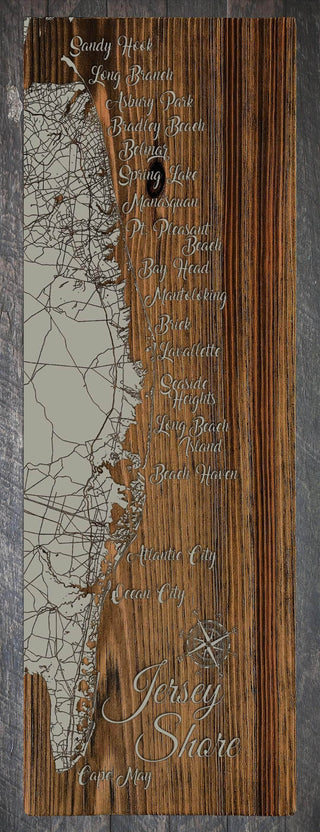 Sandy Hook
Long Branch
Asbury Park
Bradley Beach
Belmar
Spring Lake
Manasquan
Pt. Pleasant
Beach
Bay Head
Mantoloking
Brick
Lavallette
Seaside
Heights
Long Beach
Island
Beach Haven
Atlantic City
Ocean City
Jersey
Shore
Cape May